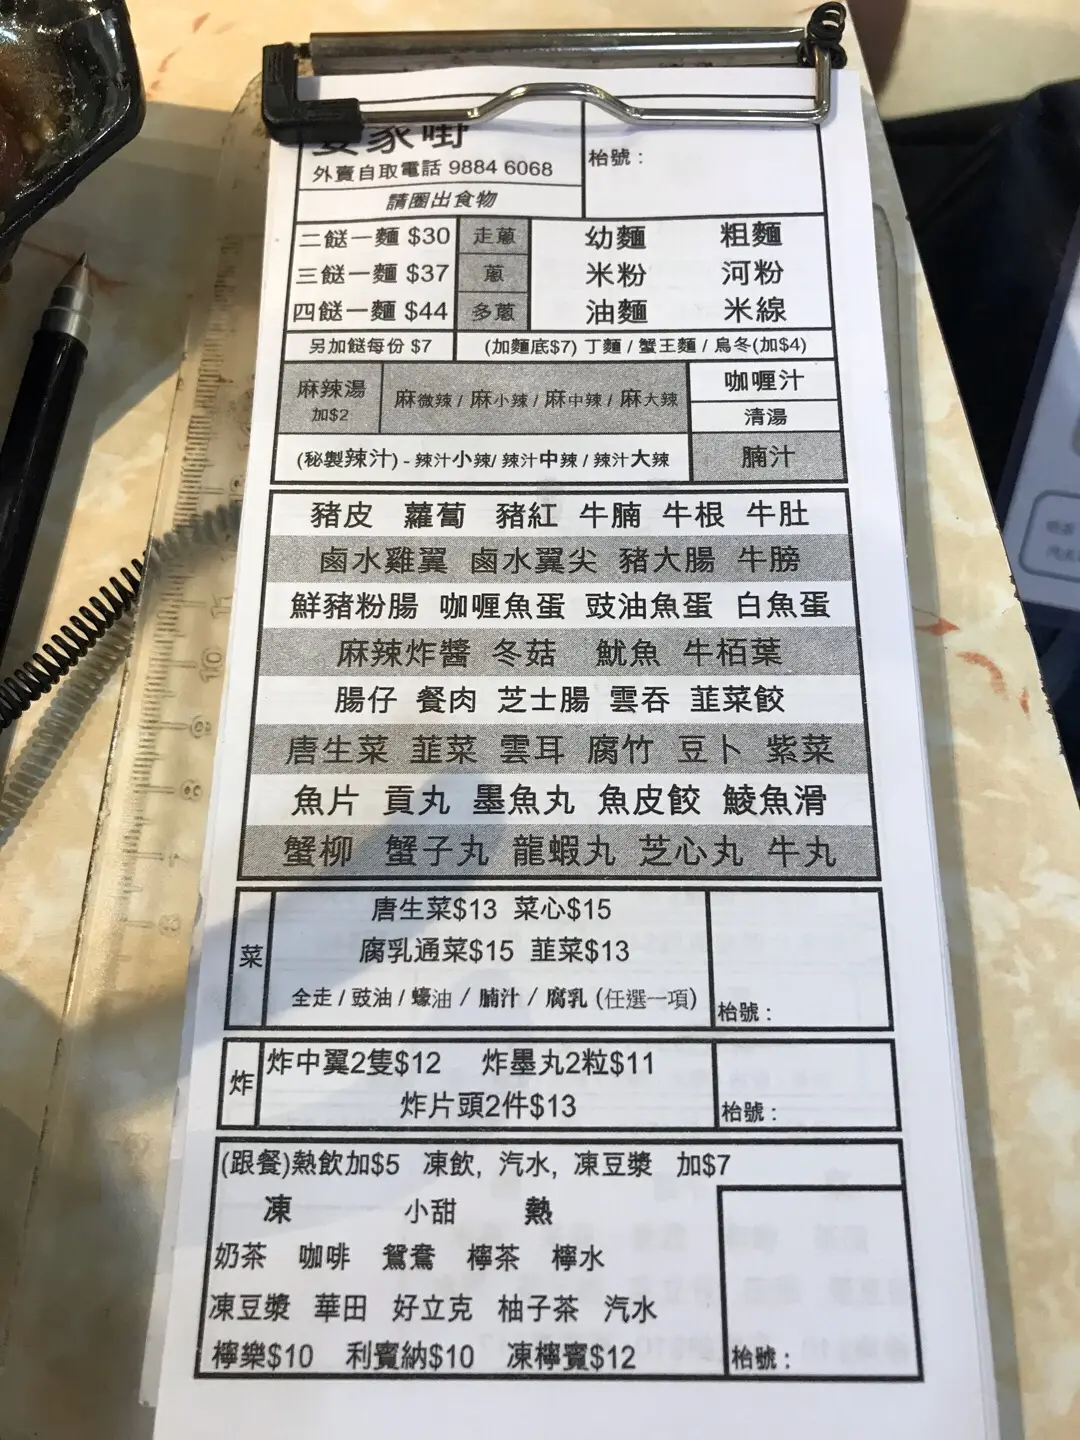 外賣自取電話 9884 6068
枱號：
請圈出食物
二餸一麵 $30 走蔥 幼麵 粗麵
三餸一麵 $37 蔥 米粉 河粉
四餸一麵 $44 多蔥 油麵 米線
另加餸每份 $7 (加麵底$7) 丁麵 / 蟹王麵 / 烏冬(加$4)
麻辣湯 加$2 麻微辣 / 麻小辣 / 麻中辣 / 麻大辣 咖喱汁
清湯
(秘製辣汁) - 辣汁小辣/ 辣汁中辣 / 辣汁大辣 腩汁
豬皮 蘿蔔 豬紅 牛腩 牛根 牛肚
鹵水雞翼 鹵水翼尖 豬大腸 牛膀
鮮豬粉腸 咖喱魚蛋 豉油魚蛋 白魚蛋
麻辣炸醬 冬菇 魷魚 牛栢葉
腸仔 餐肉 芝士腸 雲吞 韮菜餃
唐生菜 韮菜 雲耳 腐竹 豆卜 紫菜
魚片 貢丸 墨魚丸 魚皮餃 鯪魚滑
蟹柳 蟹子丸 龍蝦丸 芝心丸 牛丸
菜
唐生菜$13 菜心$15
腐乳通菜$15 韮菜$13
全走 / 豉油 / 蠔油 / 腩汁 / 腐乳 (任選一項)
枱號：
炸
炸中翼2隻$12 炸墨丸2粒$11
炸片頭2件$13
枱號：
(跟餐)熱飲加$5 凍飲, 汽水, 凍豆漿 加$7
凍 小甜 熱
奶茶 咖啡 鴛鴦 檸茶 檸水
凍豆漿 華田 好立克 柚子茶 汽水
檸樂$10 利賓納$10 凍檸賓$12
枱號：